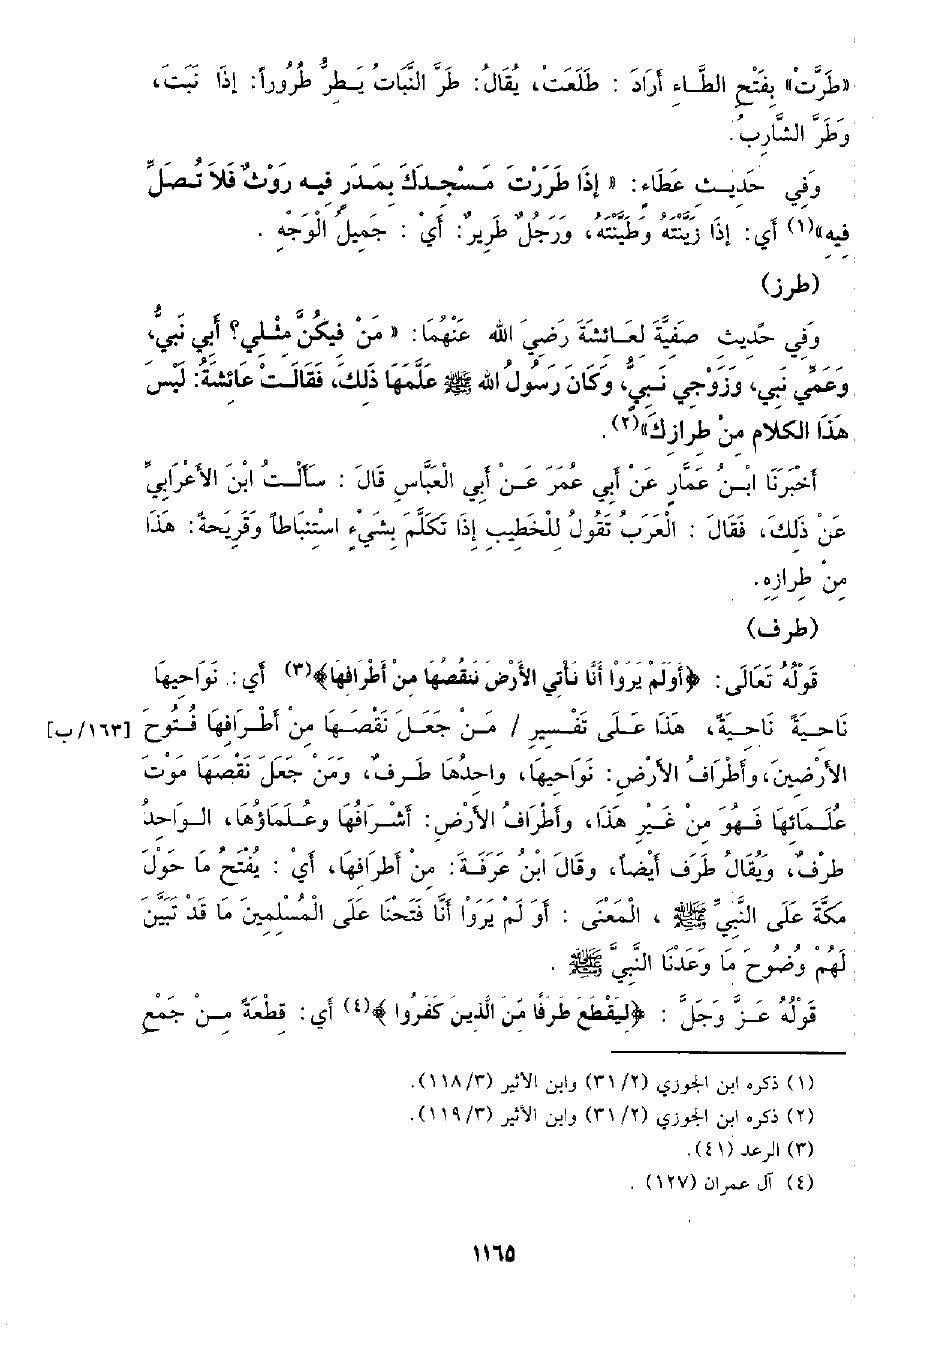 «طَرَّت» بِفَتْحِ الطَّاءِ أَرَادَ : طَلَعَتْ، يُقَالُ: طَرَّ النَّبَاتُ يَـطِرُّ طُرُوراً: إِذَا نَبَتَ،
وَطَرَّ الشَّارِبُ.
وَفِي حَدِيـثِ عَطَاءٍ: « إِذَا طَرَرْتَ مَسْجِدَكَ بِمَدَرٍ فِيهِ رَوْثٌ فَلَا تُـصَلِّ
فِيهِ»(١) أَي: إِذَا زَيَّنْتَهُ وَطَيَّنْتَهُ، وَرَجُلٌ طَرِيرٌ: أَيْ : جَمِيلُ الْوَجْهِ .
(طرز)
وَفِي حَدِيثِ صَفِيَّةَ لِعَـائِشَةَ رَضِيَ الله عَنْهُمَا: « مَنْ فِيكُنَّ مِثْلِي؟ أَبِي نَبِيٌّ،
وَعَمِّي نَبِي، وَزَوْجِي نَـبِيٌّ، وَكَانَ رَسُولُ الله ﷺ عَلَّمَهَا ذَلِكَ، فَقَالَـتْ عَائِشَةُ: لَيْسَ
هَذَا الكلام مِنْ طِرَازِكَ»(٢).
أَخْبَرَنَا ابْـنُ عَمَّارٍ عَنْ أَبِي عُمَرَ عَـنْ أَبِي الْعَبَّاسِ قَالَ : سَأَلْـتُ ابْنَ الأَعْرَابِيِّ
عَنْ ذَلِكَ، فَقَالَ : الْعَرَبُ تَقُولُ لِلْخَطِيبِ إِذَا تَكَلَّمَ بِشَيْءٍ اسْتِنْبَاطاً وَقَرِيحَةً: هَذَا
مِنْ طِرازِهِ.
(طرف)
قَوْلُهُ تَعَالَى: ﴿أَوَلَمْ يَرَوْا أَنَّا نَأْتِي الأَرْضَ نَنقُصُهَا مِنْ أَطْرَافِهَا﴾(٣) أَي: نَوَاحِيهَا
نَاحِيَةً نَاحِيَةً، هَذَا عَلَى تَفْسِيرِ / مَـنْ جَعَـلَ نَقْصَـهَا مِنْ أَطْـرَافِهَا فُتُوحَ [١٦٣/ب]
الأَرْضِينَ، وَأَطْرَافُ الأَرْضِ: نَوَاحِيهَا، وَاحِدُهَا طَـرفٌ، وَمَنْ جَعَلَ نَقْصَهَا مَوْتَ
عُلَمَائِهَا فَـهُوَ مِنْ غَيْرِ هَذَا، وَأَطْرَافُ الأَرْضِ: أَشْرَافُهَا وَعُـلَمَاؤُهَا، الـوَاحِدُ
طَرْفٌ، وَيُقَالُ طَرَف أَيْضاً، وقَالَ ابْنُ عَرَفَـةَ: مِنْ أَطرَافِهَا، أَيْ : يُفْتَحُ مَا حَوْلَ
مَكَّةَ عَلَى النَّبِيِّ ﷺ ، الْمَعْنَى : أَوَ لَمْ يَرَوْا أَنَّا فَتَحْنَا عَلَى الْمُسْلِمِينَ مَا قَدْ تَبَيَّنَ
لَهُمْ وُضُوحَ مَا وَعَدْنَا النَّبِيَّ ﷺ .
قَوْلُهُ عَـزَّ وَجَلَّ : ﴿لِيَقْطَعَ طَرَفًا مِّنَ الَّذِينَ كَفَرُوا ﴾(٤) أَي: قِطْعَةً مِـنْ جَمْعِ
(١) ذكره ابن الجوزي (٣١/٢) وابن الأثير (١١٨/٣).
(٢) ذكره ابن الجوزي (٣١/٢) وابن الأثير (١١٩/٣).
(٣) الرعد (٤١).
(٤) آل عمران (١٢٧) .
١١٦٥